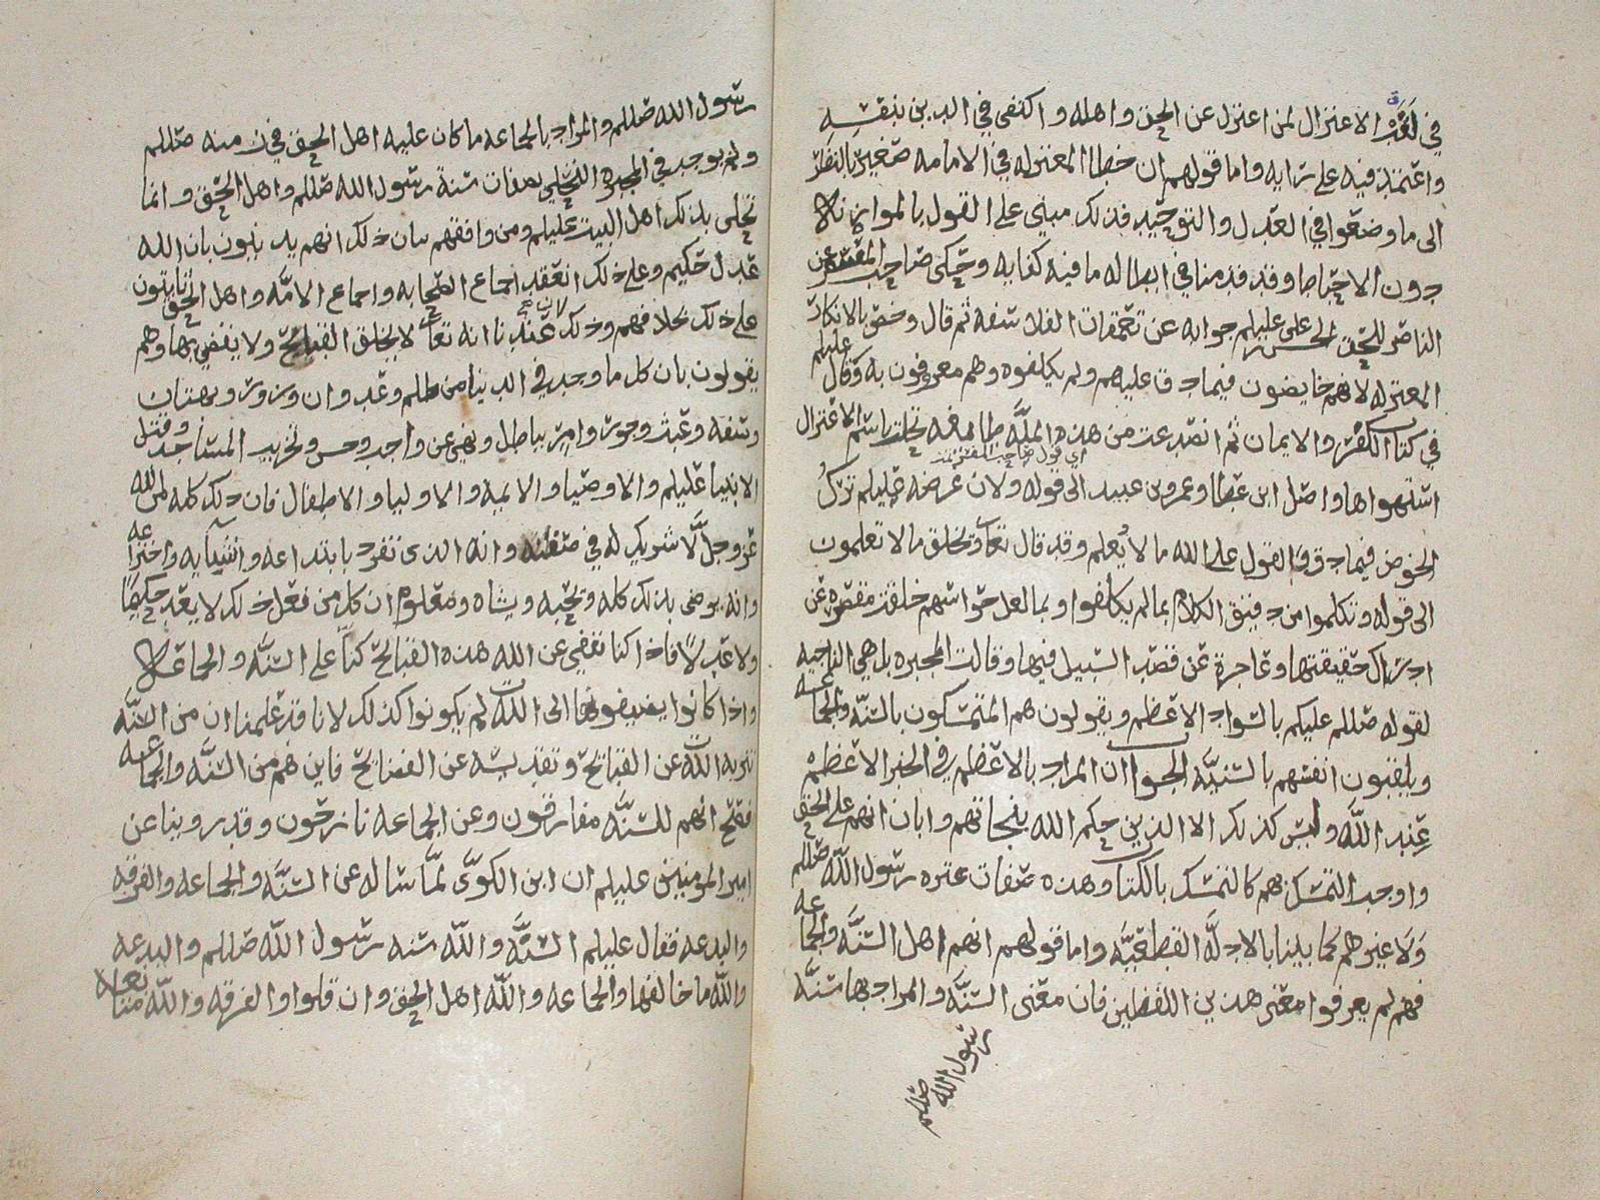 في لغة الاعتزال لمن اعتزل عن الحق واهله واكتفى في الدين بنفسه
واعتمد فيه على رايه واما قولهم ان خطا المعتزله في الامامه صغير بالنظر
الى ما وضعوا في العدل والتوحيد فذلك مبني على القول بالموازنه
دون الاحباط وقد قدمنا في ابطاله ما فيه كفايه وحكى صاحب
الناصر للحق الحسن بن علي عليلم جوابه عن تعمقات الفلاسفه ثم قال وخص بالانكار
المعتزله لانهم خايضون فيما دق عليهم ولم يكلفوه وهم معروفون به وقال عليلم
في كتاب الكفر والايمان ثم انصدعت من هذه الملَّه طايفه تحلت باسم الاعتزال
اي قول صاحب
استهواها واصل ابن عطا وعمرو بن عبيد الى قوله ولان غرضه عليلم ترك
الخوض فيما دق والقول على الله ما لا يُعلم وقد قال تعا ويخلق ما لا تعلمون
الى قوله وتكلموا من دقيق الكلام بما لم يكلفوا وبما لعل حواسهم خلقت مقصره عن
ادراك حقيقتها وعاجزة عن قصد السبيل فيها وقالت المجبره بل هي الناجيه
لقوله صللم عليكم بالسواد الاعظم ويقولون هم المتمسكون بالسنَّه والجماعه
ويلقبون انفسهم بالسنيَّه الجواب ان المراد بالاعظم في الخبر الاعظم
عِند اللَّه وليس كذلك الا الذين حكم الله بنجاتهم وابان انهم على الحق
واوجب التمسك بهم كالتمسك بالكتاب وهذه صفات عتره رسول اللَّه صللم
ولا غيرهم كما بينا بالادلَّه القطعيَّه واما قولهم انهم اهل السنَّه والجماعه
فهم لم يعرفوا معنى هذين اللفظين فان معنى السنَّه والمراد بها سنَّه
رسول الله صللم
رسول الله صللم والمراد بالجماعه ما كان عليه اهل الحق في زمنه صللم
ولم يوجد في المجبره التحلي بصفات سنة رسول الله صللم واهل الحق وانما
تحلى بذلك اهل البيت عليلم ومن وافقهم بيان ذلك انهم يدينون بان الله
عدل حكيم وعلى ذلك انعقد اجماع الصحابه واجماع الامَّه واهل الحق ثابتون
على ذلك بخلافهم وذلك لان عندنا انه تعا لا يخلق القبائح ولا يقضي بها وهم
يقولون بان كل ما وجد في الدنيا من ظلم وعدوان وزور وبهتان
وسفه وعبث وجور وامر بباطل ونهي عن واجب وحسن وتخريب المساجد وقتل
الانبيا عليلم والاوصيا والايمه والاوليا والاطفال فان ذلك كله من الله
عزوجلَّ لا شريك له في صفته وانه الذى تفرد بابتداعه وانشايه واختراعه
وانه يرضى بذلك كله ويحبه ويشاه ومعلوم ان كل من فعل ذلك لا يعد حكيمًا
ولا عدلًا فاذا كنا نقضي عن الله هذه القبائح كنا على السنَّه والجماعه
واذا كانوا يضيفونها الى اللَّه لم يكونوا كذلك لانا قد علمنا ان من السنَّه
تنزيه اللَّه عن القبائح وتقديسه عن الفضائح فاين هم من السنَّه والجماعه
فصح انهم للسنَّه مفارقون وعن الجماعه نازحون وقد روينا عن
امير المومنين عليلم ان ابن الكوَّى لمَّا ساله عن السنَّه والجماعه والفرقه
والبدعه فقال عليلم السنَّه واللَّه سنه رسول اللَّه صللم والبدعه
واللَّه ما خالفها والجماعه واللَّه اهل الحق وان قلوا والفرقه واللَّه